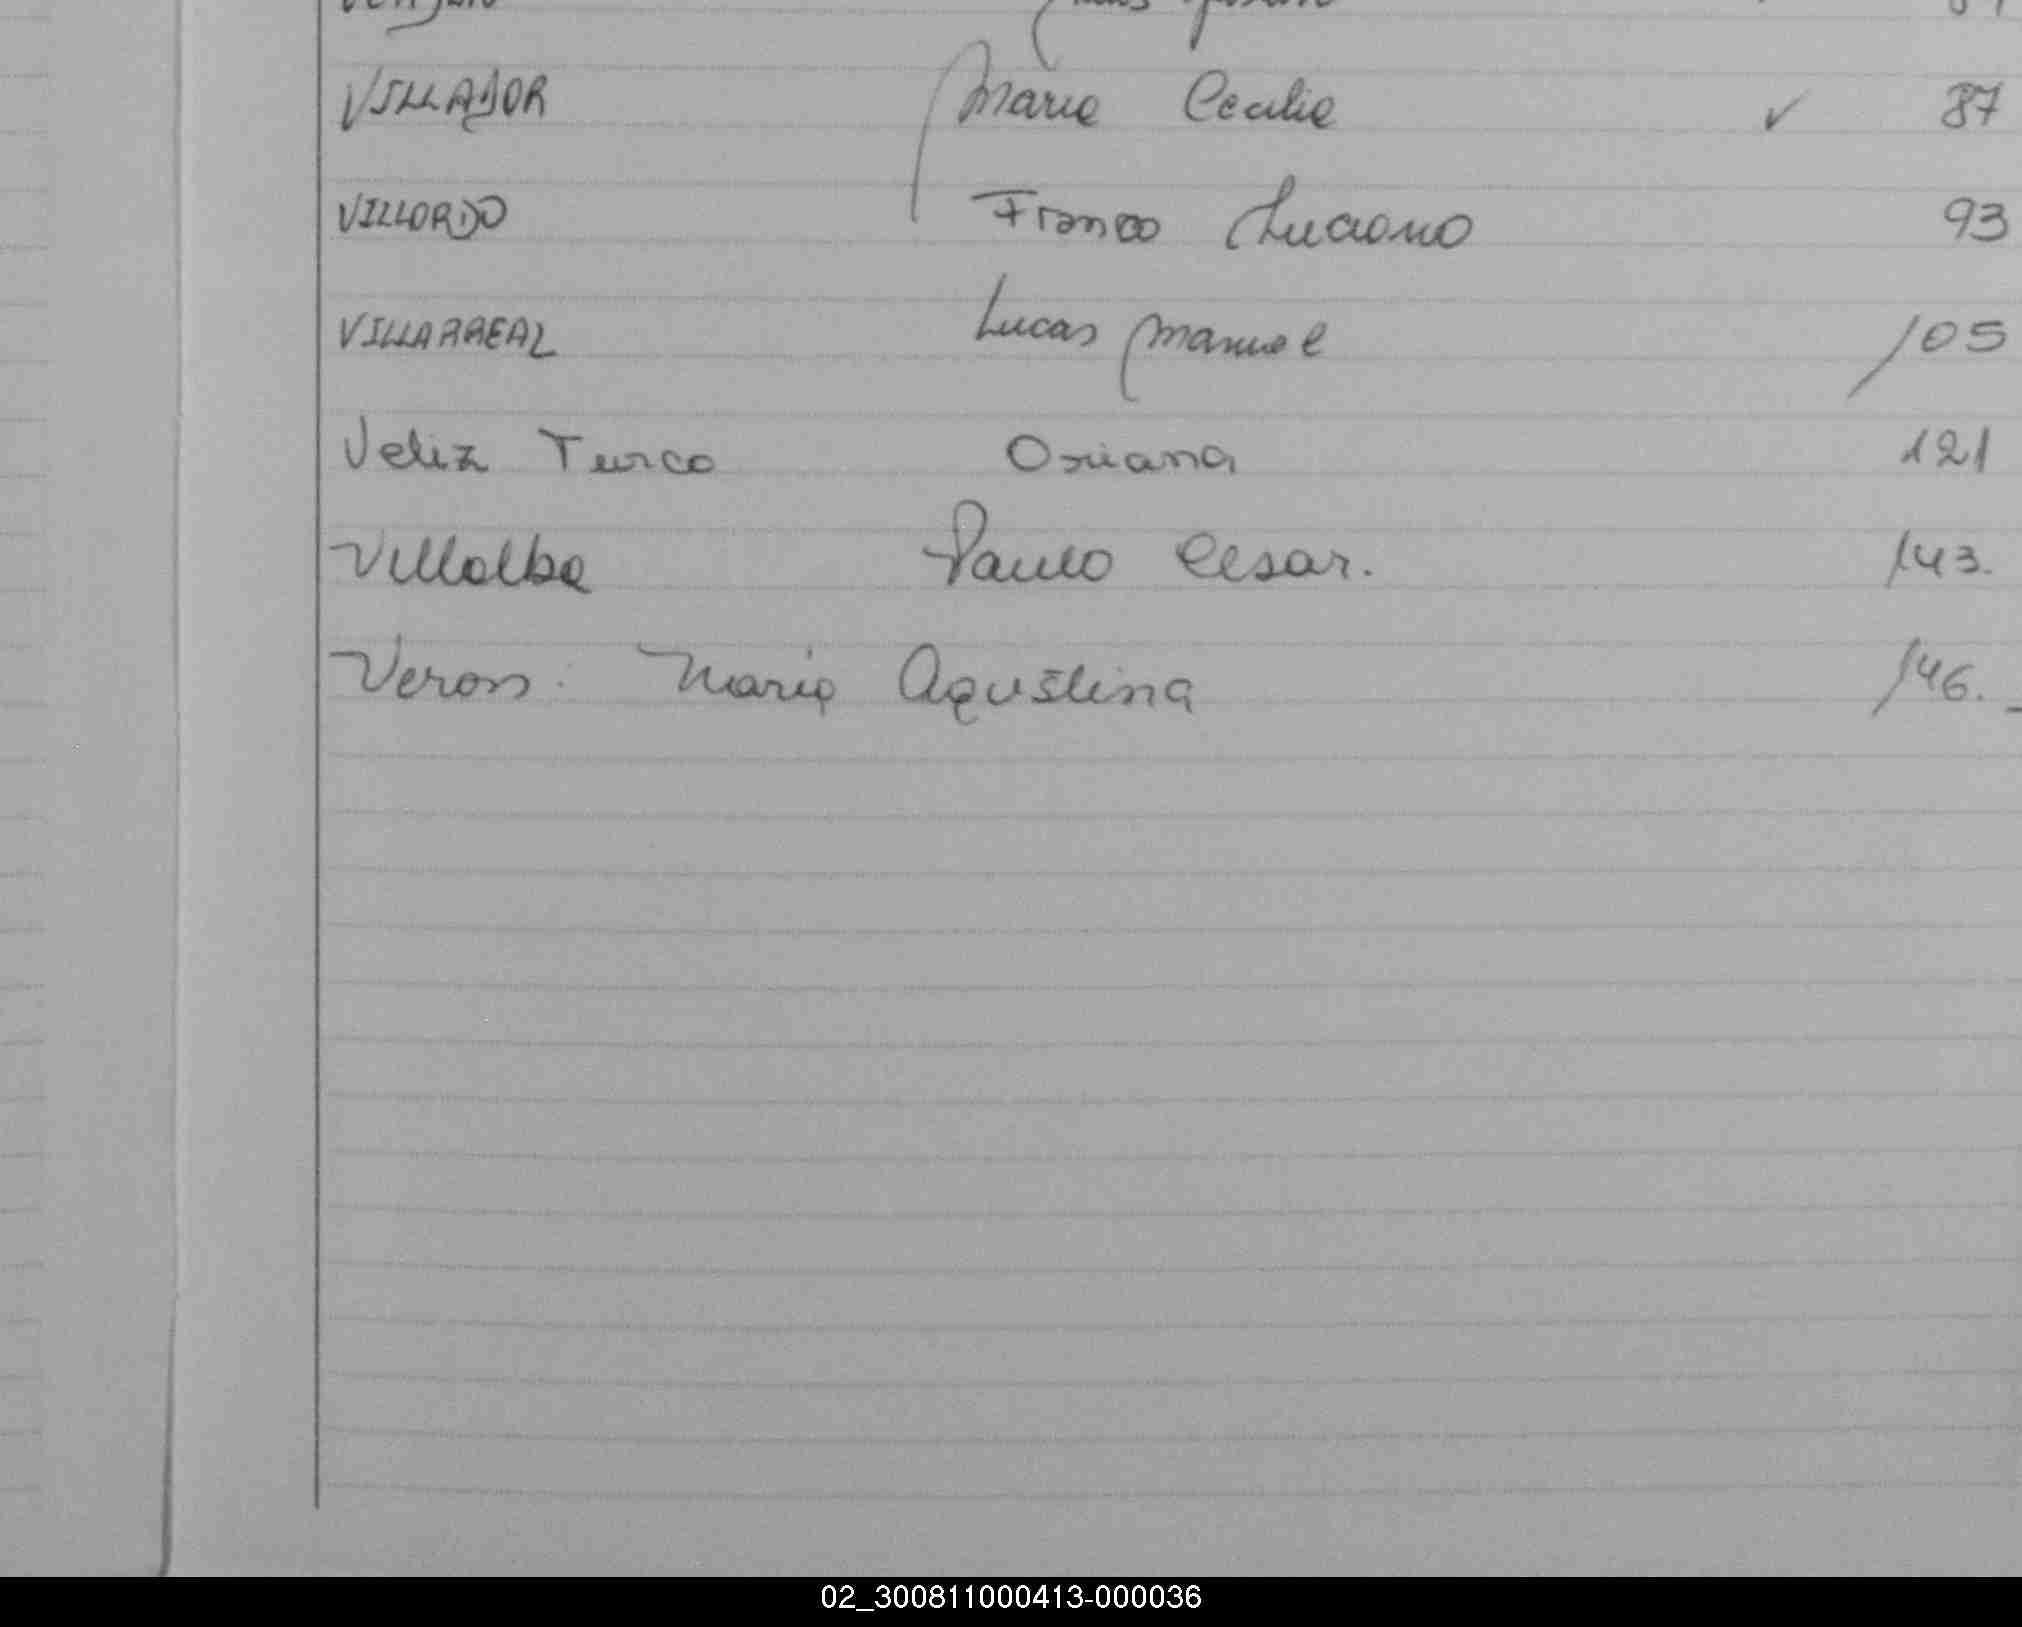 VILLADOR Maria Cecilia ✓ 87
VILLORDO Franco Luciano 93
VILLARREAL Lucas Manuel 105
Veliz Turco Oriana 121
Villalba Paulo Cesar. 143.
Veron: Maria Agustina 146.
02_300811000413-000036